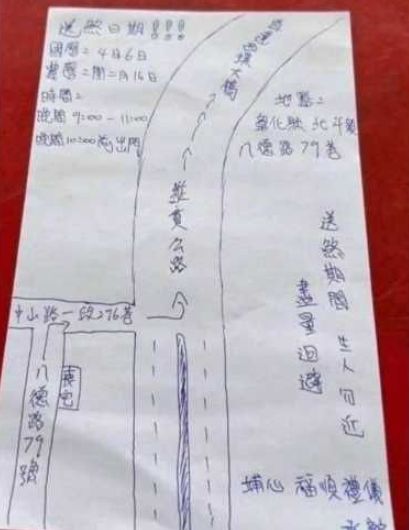 送煞日期!!!
國曆:4月6日
農曆:閏二月16日
時間:
晚間9:00-11:00
晚間10:00前出門
直達西濱大橋
地點:
彰化縣北斗鎮
八德路79巷
縱貫公路
送煞期間 生人勿近
盡量迴避
中山路一段276巷
喪宅
八德路79號
埔心 福順禮儀